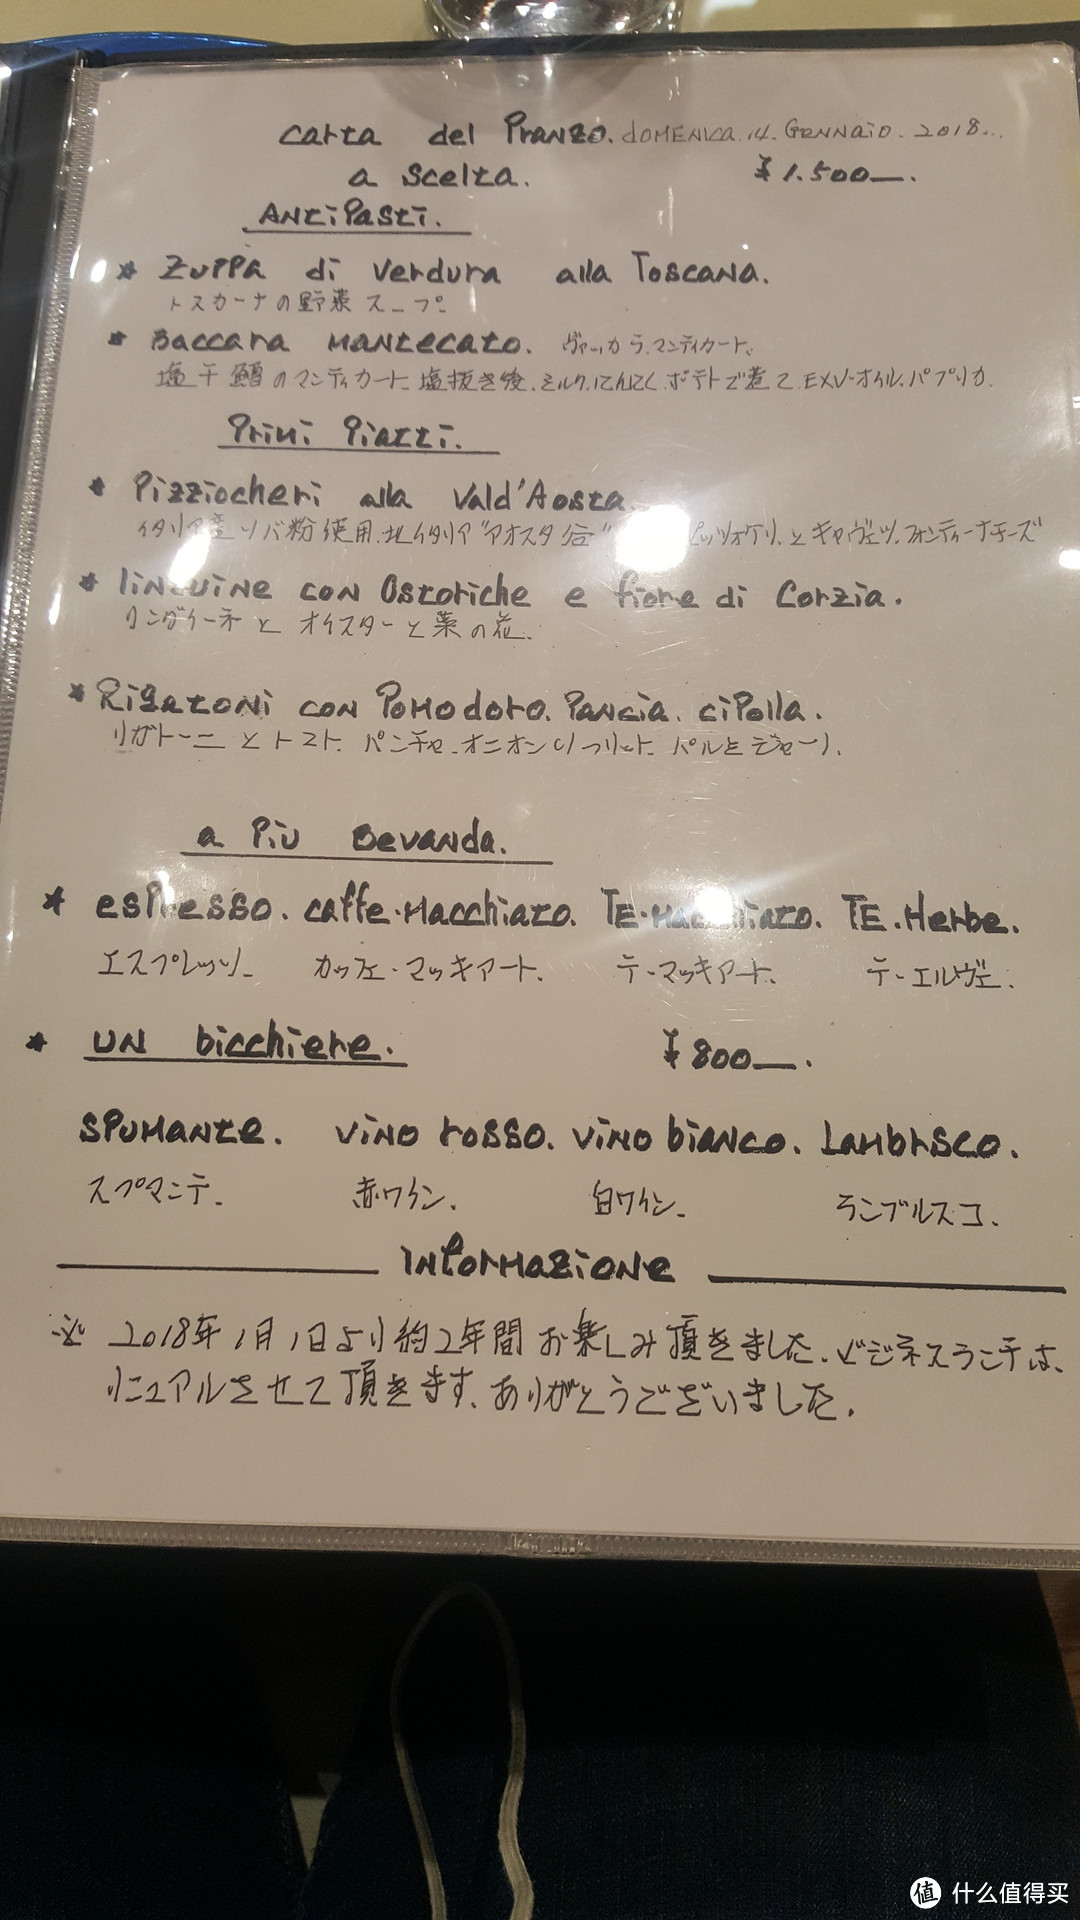 Carta del Pranzo. DOMENICA.14. GENNAIO. 2018...
a scelta. ¥1.500—.
Antipasti.
* Zuppa di Verdura alla Toscana.
トスカーナの野菜スープ.
* Baccara Mantecato. ヴァッカラ.マンティカート.
塩干鱈のマンティカート.塩抜き後.ミルク.にんにく.ポテトで煮て.EXV.オイル.パプリカ.
Primi Piatti.
* Pizziocheri alla Vald'Aosta.
イタリア産ソバ粉使用.北イタリア"アオスタ谷" ピッツォケリ.とキャヴェツ.フォンティーナチーズ
* linguine con Ostoriche e fiore di Corzia.
リングイーネとオイスターと菜の花.
* Rigatoni con Pomodoro. Pancia. cipolla.
リガトーニとトマト.パンチャ.オニオンソフリット.パルミジャーノ.
a Più Bevanda.
* espresso. caffe.Macchiato. TE.Macchiato. TE.Herbe.
エスプレッソ. カッフェ.マッキアート. テ.マッキアート. テ.エルヴェ.
* un bicchiere. ¥800—.
Spumante. vino rosso. vino bianco. Lambrsco.
スプマンテ. 赤ワイン. 白ワイン. ランブルスコ.
Informazione
※ 2018年1月1日より約2年間お楽しみ頂きました.ビジネスランチは、
リニュアルさせて頂きます.ありがとうございました.
值 什么值得买